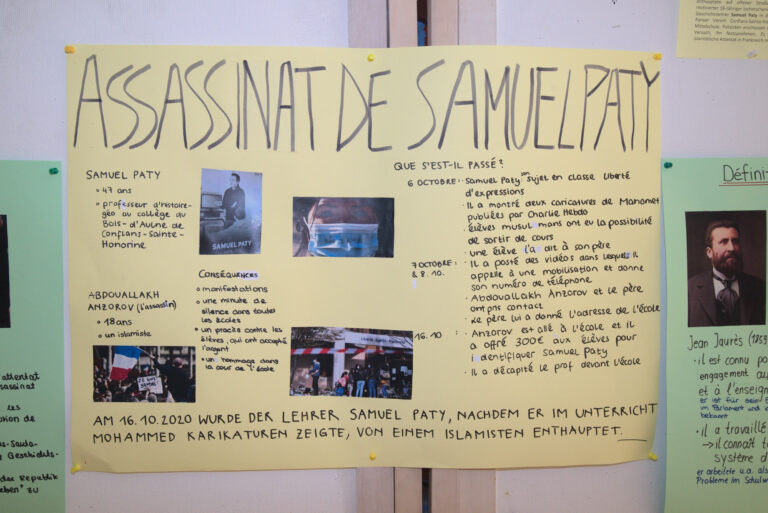 ASSASSINAT DE SAMUEL PATY
SAMUEL PATY
47 ans
professeur d'histoire-
géo au collège du
Bois-d'Aulne de
Conflans-Sainte-
Honorine
SAMUEL PATY
ABDOUALLAKH
ANZOROV (l'assassin)
18 ans
un islamiste
Conséquences
manifestations
une minute de
silence dans toutes
les écoles
un procès contre les
élèves, qui ont accepté
l'argent
un hommage dans
la cour de l'école
QUE S'EST-IL PASSÉ?
6 OCTOBRE: Samuel Paty son sujet en classe liberté
d'expressions
Il a montré deux caricatures de Mahomet
publiées par Charlie Hebdo
élèves musulmans ont eu la possibilité
de sortir de cours
une élève l'a dit à son père
7 OCTOBRE: Il a posté des vidéos dans lesquels il
& 8.10. appelle à une mobilisation et donne
son numéro de téléphone.
Abdouallakh Anzorov et le père
ont pris contact
Le père lui a donné l'adresse de l'école
16.10 Anzorov est allé à l'école et il
a offré 300€ aux élèves pour
identifiquer Samuel Paty
Il a décapité le prof devant l'école
AM 16.10.2020 WURDE DER LEHRER SAMUEL PATY, NACHDEM ER IM UNTERRICHT
MOHAMMED KARIKATUREN ZEIGTE, VON EINEM ISLAMISTEN ENTHAUPTET.
Jean Jaurès (1859
il est connu
engagement
et à l'enseign
er ist für sein
im Parlament und
bekannt
il a travaillé
→ il connaît
système d
er arbeitete u.a. als
Probleme im Schulw
l'attentat
les
Geschichts-
der Republik
eben" zu
Samuel Paty